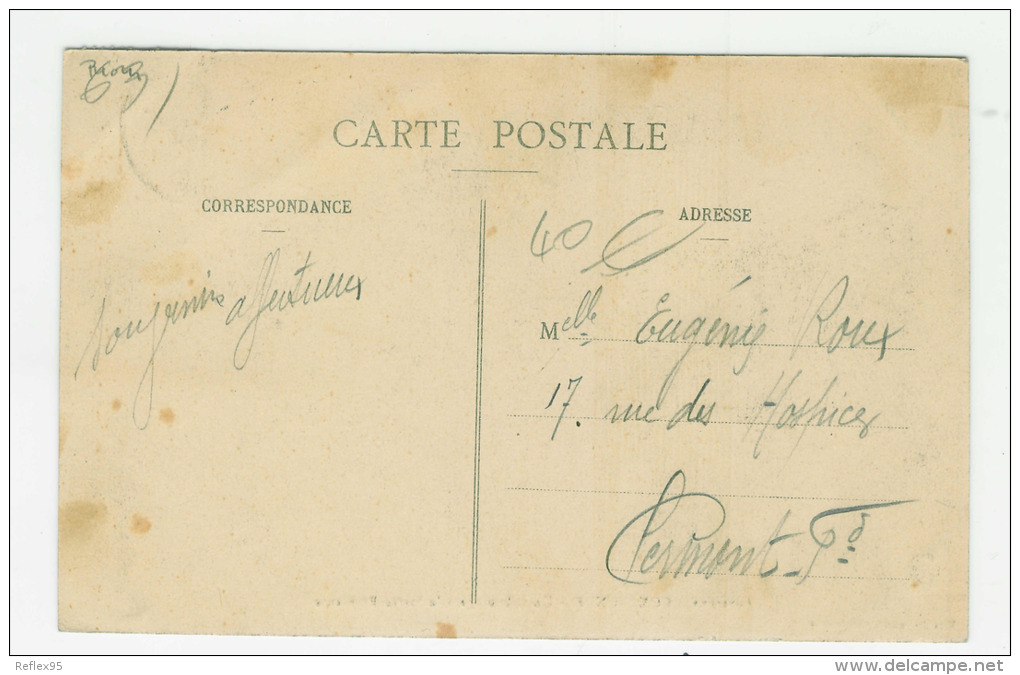 CARTE POSTALE
CORRESPONDANCE
ADRESSE
40 €
Souvenirs affectueux
Melle Eugénie Roux
17. rue des Hospices
Clermont-Fd
Reflex95
www.delcampe.net